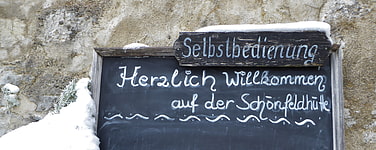 Selbstbedienung
Herzlich Willkommen
auf der Schönfeldhütte